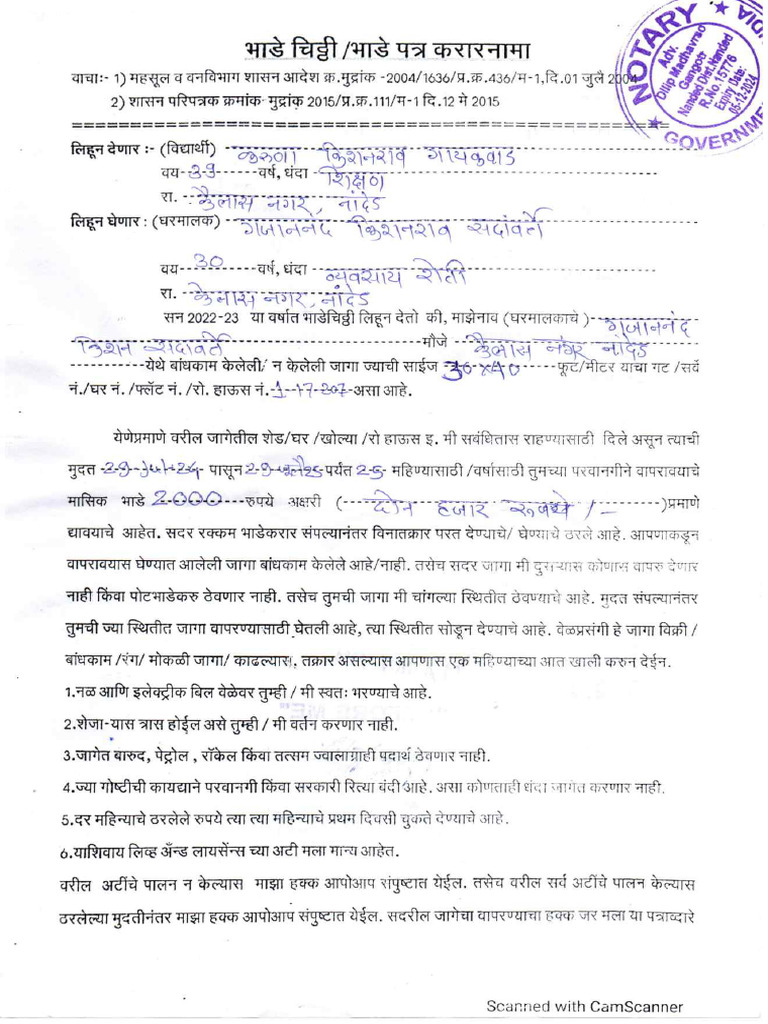 भाडे चिठ्ठी /भाडे पत्र करारनामा
वाचाः- 1) महसूल व वनविभाग शासन आदेश क्र.मुद्रांक -2004/1636/प्र.क्र.436/म-1,दि.01 जुलै 2004
2) शासन परिपत्रक क्रमांक- मुद्रांक 2015/प्र.क्र.111/म-1 दि.12 मे 2015
NOTARY
Adv.
Dilip Madhavrao
Nanded Dist.Nanded
R.No.15776
Expiry Date:
05-12-2024
GOVERNMENT
लिहून देणार :- (विद्यार्थी) करुणा किशनराव गायकवाड
वय-39-----वर्ष, धंदा शिक्षण
रा. कैलास नगर, नांदेड
लिहून घेणार : (घरमालक) गजाननंद किशनराव सदावर्ते
वय 30 वर्ष, धंदा व्यवसाय शेती
रा. कैलास नगर, नांदेड
सन 2022-23 या वर्षात भाडेचिठ्ठी लिहून देतो की, माझेनाव (घरमालकाचे ) गजाननंद
किशन सदावर्ते मौजे कैलास नगर नांदेड
येथे बांधकाम केलेली/ न केलेली जागा ज्याची साईज 30x40 फूट/मीटर याचा गट /सर्वे
नं./घर नं. /फ्लॅट नं. /रो. हाऊस नं. 1-17-207-असा आहे.
येणेप्रमाणे वरील जागेतील शेड/घर /खोल्या /रो हाऊस इ. मी सबंधितास राहण्यासाठी दिले असून त्याची
मुदत -29-Jul-24- पासून 29 जुलै25 पर्यंत 25- महिण्यासाठी /वर्षासाठी तुमच्या परवानगीने वापरावयाचे
मासिक भाडे 2000---रुपये अक्षरी (---दोन हजार रूपये /-)प्रमाणे
द्यावयाचे आहेत. सदर रक्कम भाडेकरार संपल्यानंतर विनातक्रार परत देण्याचे/ घेण्याचे ठरले आहे. आपणाकडून
वापरावयास घेण्यात आलेली जागा बांधकाम केलेले आहे/नाही. तसेच सदर जागा मी दुसऱ्यास कोणास वापरु देणार
नाही किंवा पोटभाडेकरु ठेवणार नाही. तसेच तुमची जागा मी चांगल्या स्थितीत ठेवण्याचे आहे. मुदत संपल्यानंतर
तुमची ज्या स्थितीत जागा वापरण्यासाठी घेतली आहे, त्या स्थितीत सोडून देण्याचे आहे. वेळप्रसंगी हे जागा विक्री /
बांधकाम /रंग/ मोकळी जागा/ काढल्यास, तक्रार असल्यास आपणास एक महिण्याच्या आत खाली करुन देईन.
1.नळ आणि इलेक्ट्रीक बिल वेळेवर तुम्ही / मी स्वतः भरण्याचे आहे.
2.शेजा-यास त्रास होईल असे तुम्ही / मी वर्तन करणार नाही.
3.जागेत बारुद, पेट्रोल , रॉकेल किंवा तत्सम ज्वालाग्राही पदार्थ ठेवणार नाही.
4.ज्या गोष्टीची कायद्याने परवानगी किंवा सरकारी रित्या बंदी आहे. असा कोणताही धंदा जागेत करणार नाही.
5.दर महिन्याचे ठरलेले रुपये त्या त्या महिन्याचे प्रथम दिवसी चुकते देण्याचे आहे.
6.याशिवाय लिव्ह अँन्ड लायसेंन्स च्या अटी मला मान्य आहेत.
वरील अटींचे पालन न केल्यास माझा हक्क आपोआप संपुष्टात येईल. तसेच वरील सर्व अटींचे पालन केल्यास
ठरलेल्या मुदतीनंतर माझा हक्क आपोआप संपुष्टात येईल. सदरील जागेचा वापरण्याचा हक्क जर मला या पत्राव्दारे
Scanned with CamScanner